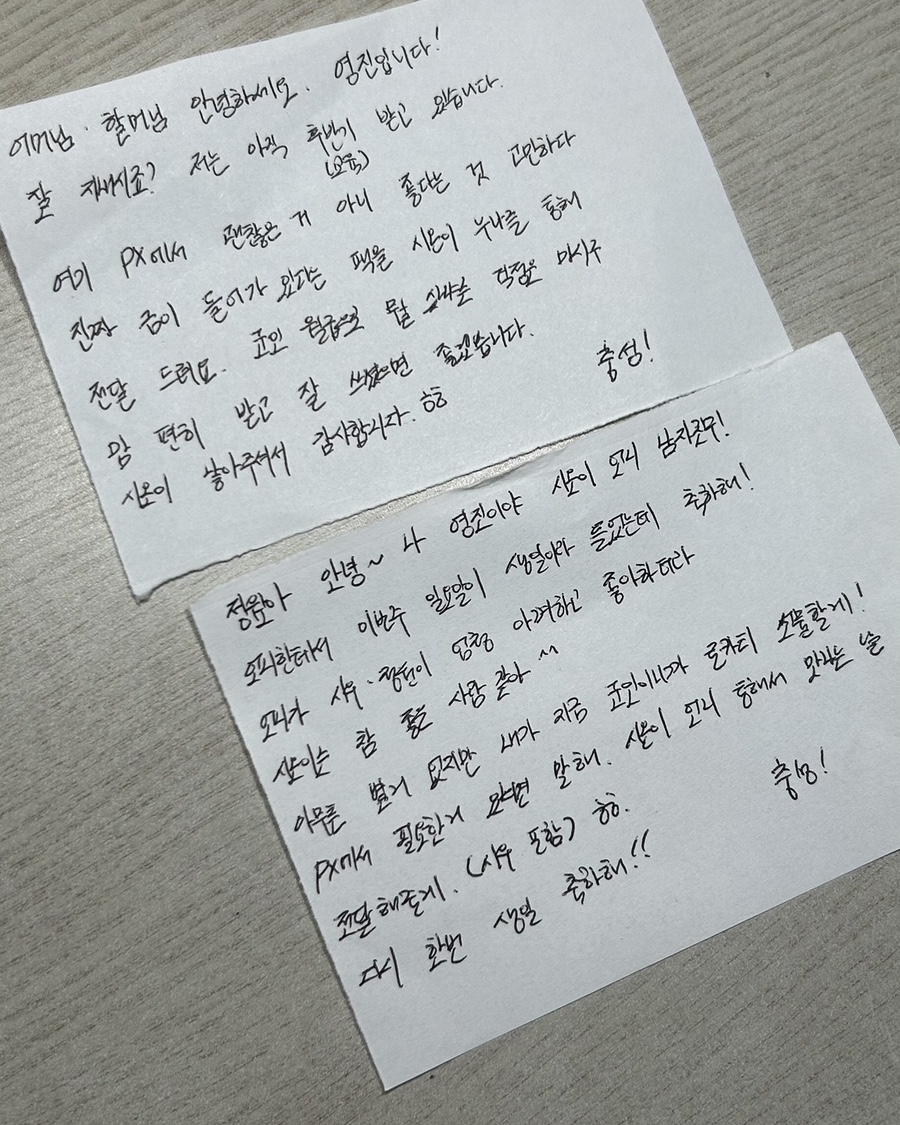 어머님·할머님 안녕하세요. 영진입니다!
잘 지내시죠? 저는 아직 후반기 받고 있습니다.
(교육)
여기 PX에서 괜찮은 거 아니 좋다는 것 고민하다
진짜 금이 들어가 있다는 팩을 시온이 누나를 통해
전달 드려요. 군인 월급으로 뭘 샀나는 걱정은 마시구
맘 편히 받고 잘 쓰셨으면 좋겠습니다.
시온이 낳아주셔서 감사합니다. ㅎㅎ 충성!
정원아 안녕~ 나 영진이야 시온이 언니 남자친구!
오피한테서 이번주 일요일이 생일이라 들었는데 축하해!
오피가 시우·정원이 엄청 아려하고 좋아하더라
시온이는 참 좋은 사람 같아 ^^
아무튼 별거 없지만 내가 지금 군인이니까 로카티 선물할게!
PX에서 필요한거 있으면 말해. 시온이 언니 통해서 맛있는 날
전달해줄게. (시우 포함) ㅎㅎ. 충성!
다시 한번 생일 축하해!!